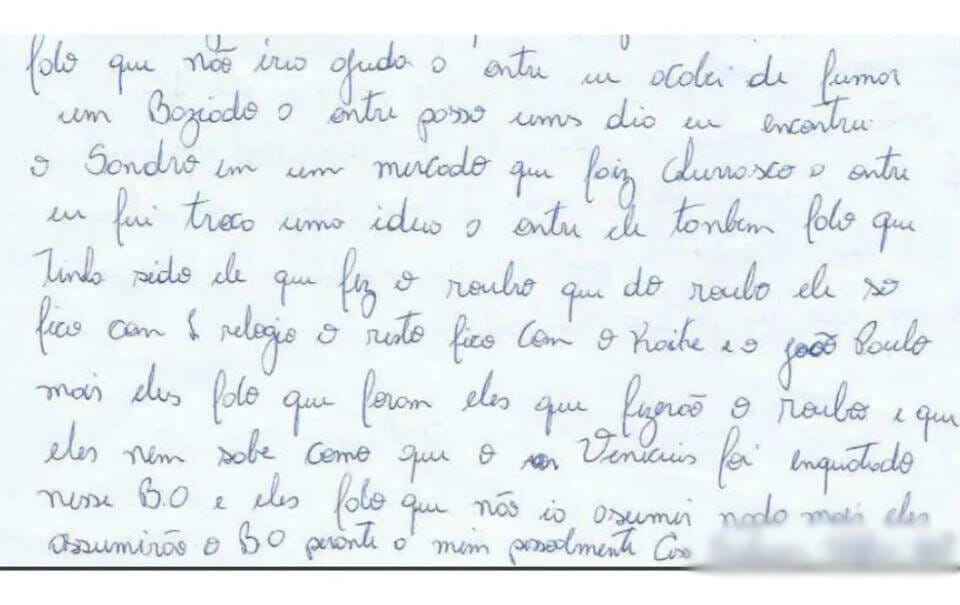 falo que não irio ajuda o entre eu acabei de fumar
um Baziado o entre passo ums dia eu encontrei
o Sandro em um mercado que faiz Churrasco o entre
eu fui troca uma ideia o entre ele tanbem falo que
Tinha sido ele que fez o roubo que do roubo ele so
fico com 1 relogio o resto fico com o Kaike e o João Paulo
mais eles falo que foram eles que fizerão o roubo e que
eles nem sabe como que o Venicius foi enquatado
nesse B.O e eles falo que não io asumir nada mais eles
assumirão o BO perante o mim pessoalmente